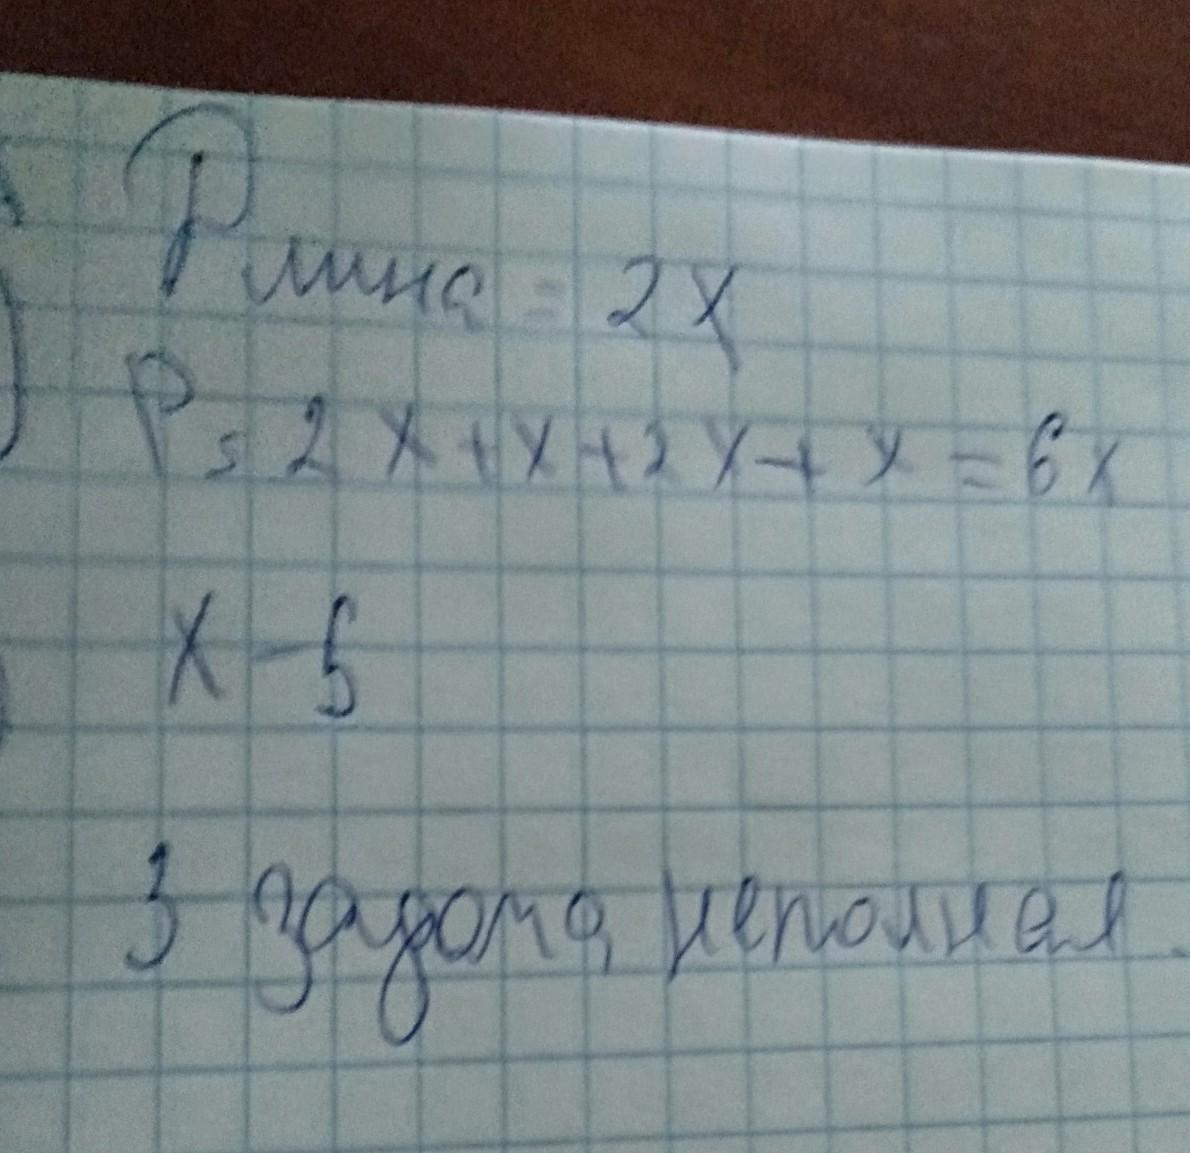 Рмина = 2x
P = 2x + x + 2x + x = 6x
x - 5
3 задома неполная